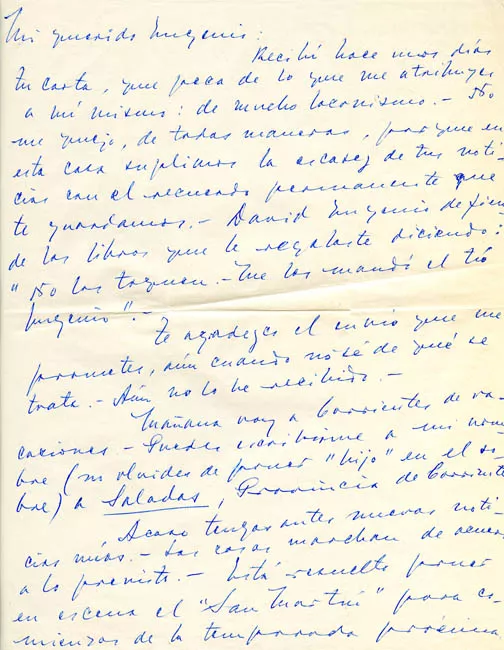 Mi querido Eugenio:
Recibí hace unos días
tu carta, que peca de lo que me atribuyes
a mí mismo: de mucho laconismo.- No
me quejo, de todas maneras, porque en
esta casa suplimos la escasez de tus noti-
cias con el recuerdo permanente que
te guardamos.- David Eugenio defien
de los libros que le regalaste diciendo:
"No los toquen.- Me los mandó el tío
Eugenio".-
Te agradezco el envío que me
prometes, aún cuando no sé de qué se
trata.- Aún no lo he recibido.-
Mañana voy a Corrientes de va-
caciones.- Puedes escribirme a mi nom
bre (no olvides de poner "hijo" en el so-
bre) a Saladas, Provincia de Corrientes
Acaso tengas antes nuevas noti-
cias mías.- Las cosas marchan de acuer
a lo previsto.- Está resuelto poner
en escena el "San Martín" para co-
mienzos de la temporada próxima